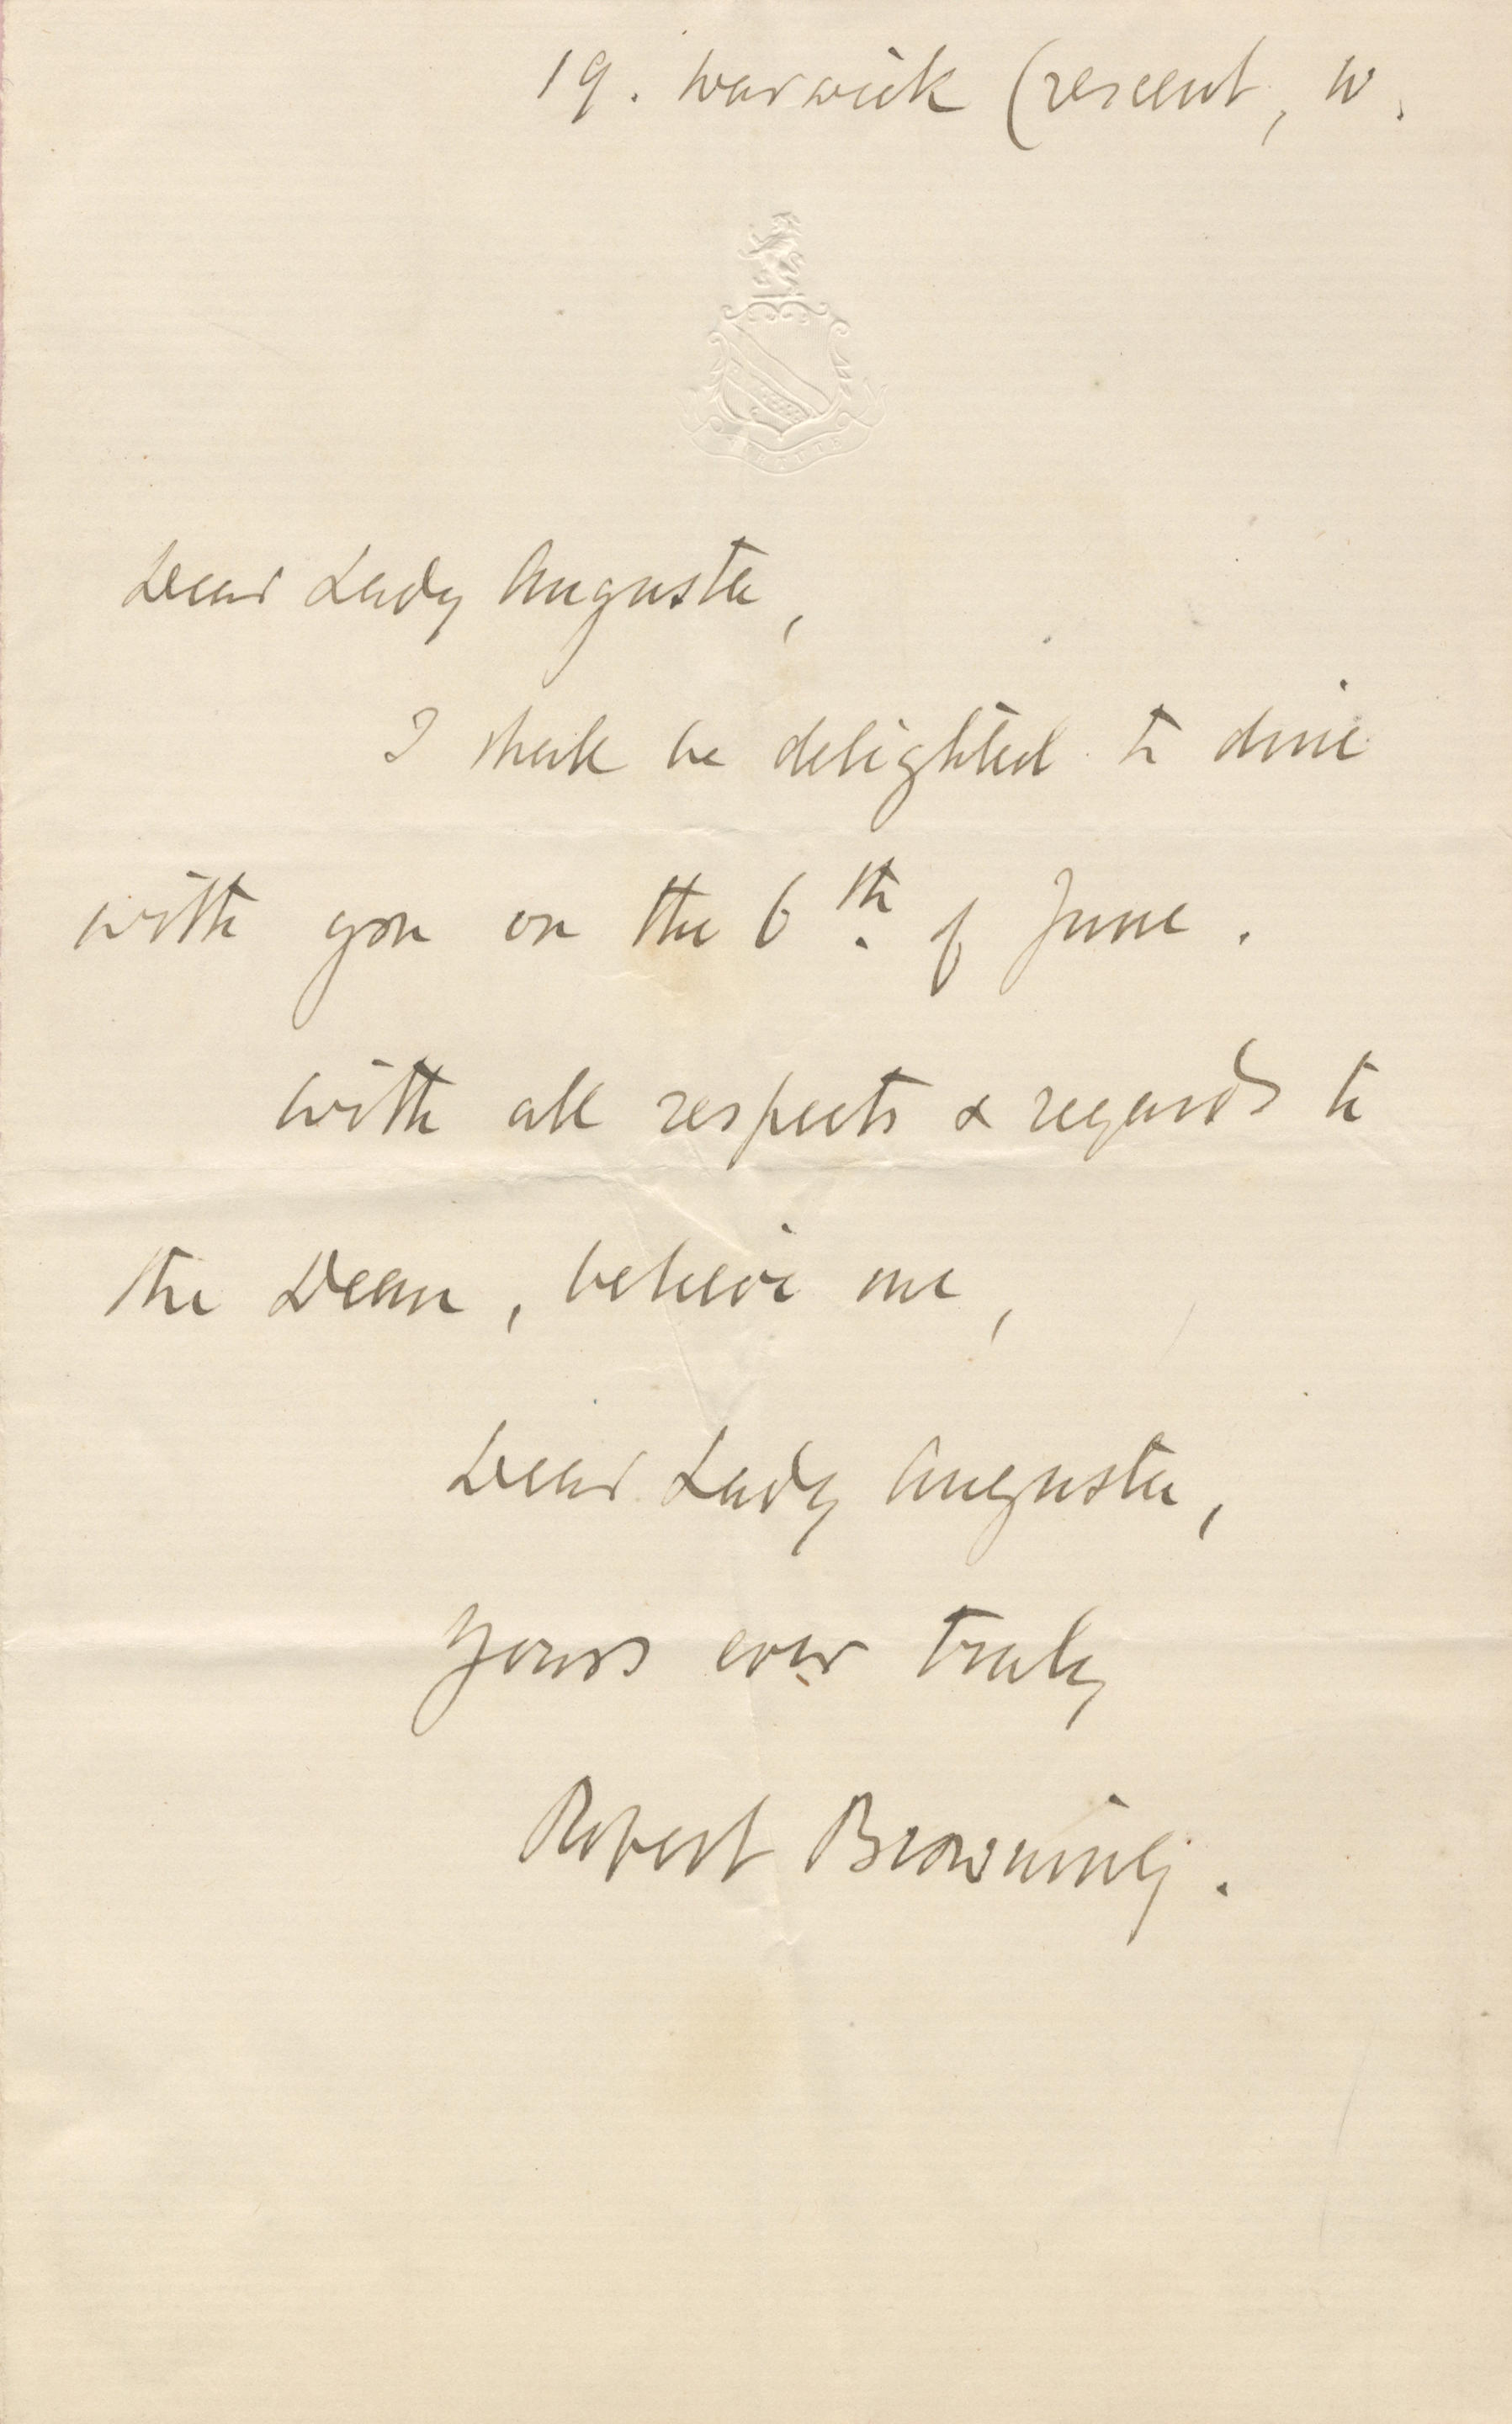 19. Warwick Crescent, W.
Dear Lady Augusta,
I shall be delighted to dine
with you on the 6th. of June.
With all respects & regards to
the Dean, believe me,
Dear Lady Augusta,
Yours ever truly
Robert Browning.